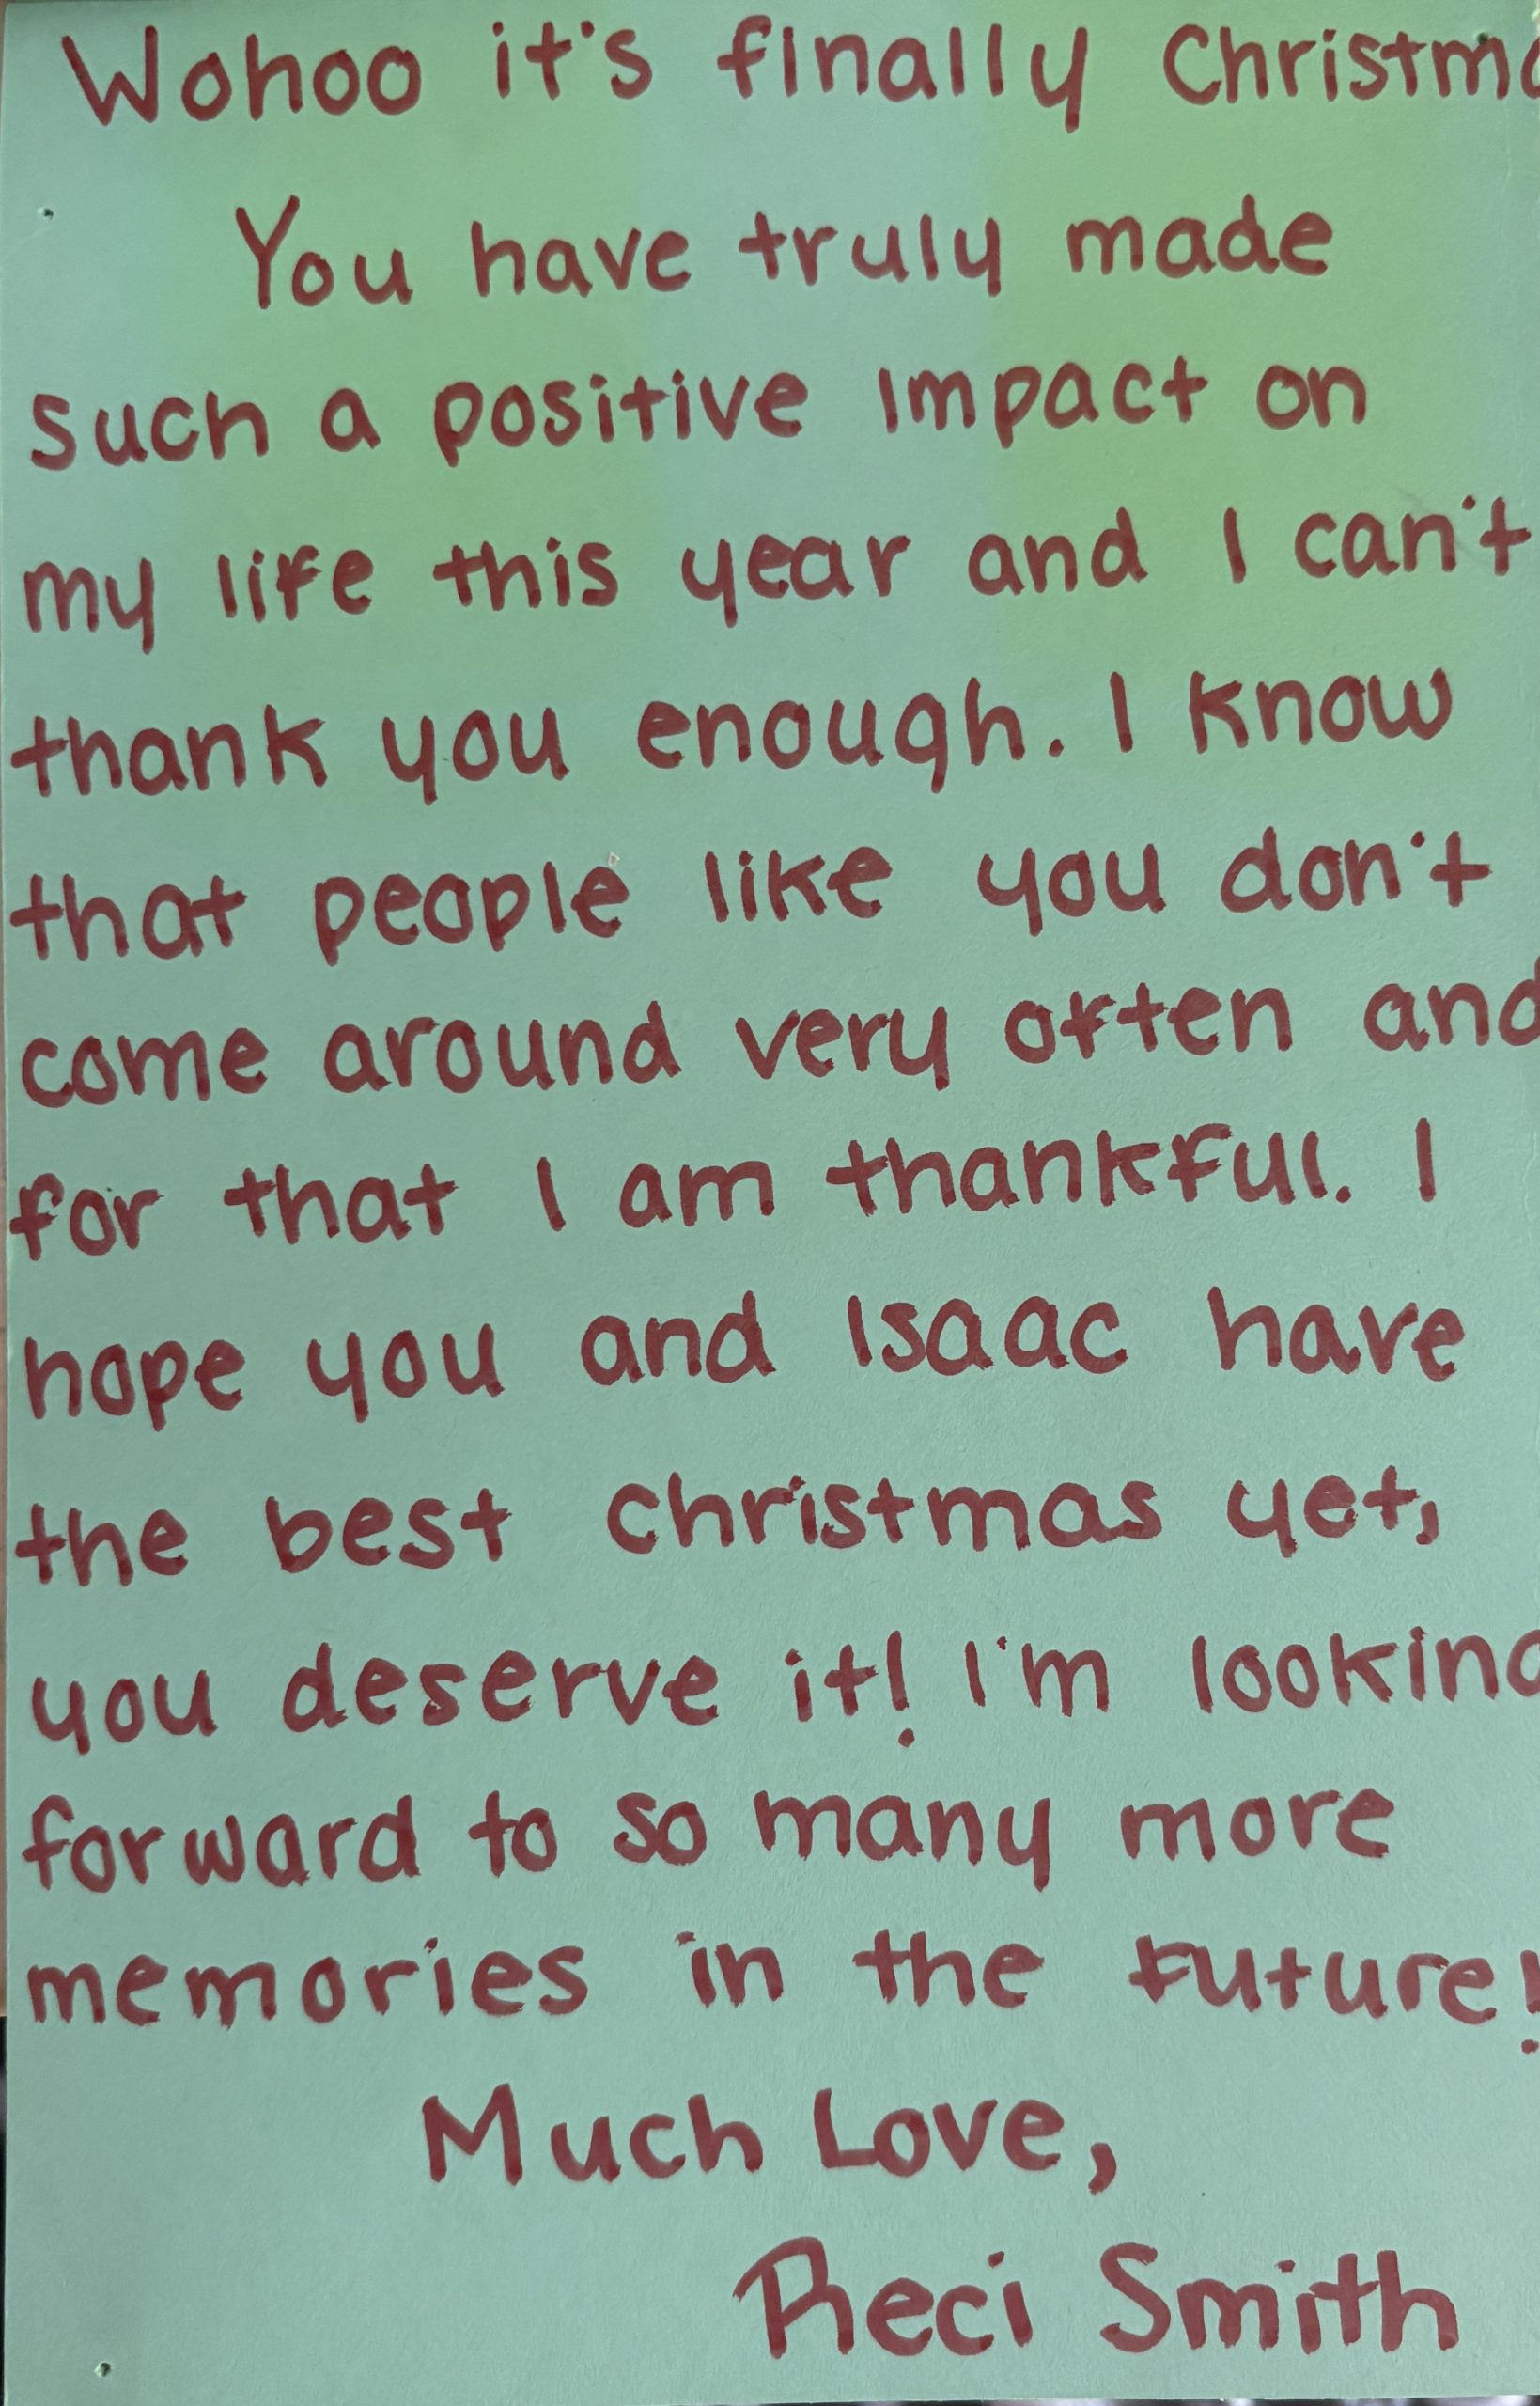 Wohoo it's finally Christma
You have truly made
such a positive impact on
my life this year and I can't
thank you enough. I know
that people like you don't
come around very often and
for that I am thankful. I
hope you and Isaac have
the best christmas yet,
you deserve it! I'm looking
forward to so many more
memories in the future!
Much Love,
Reci Smith